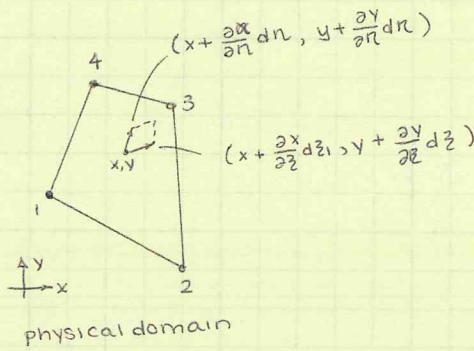 (x + ∂x/∂η dη, y + ∂y/∂η dη)
4
3
x,y
(x + ∂x/∂ξ dξ, y + ∂y/∂ξ dξ)
1
2
y
x
physical domain